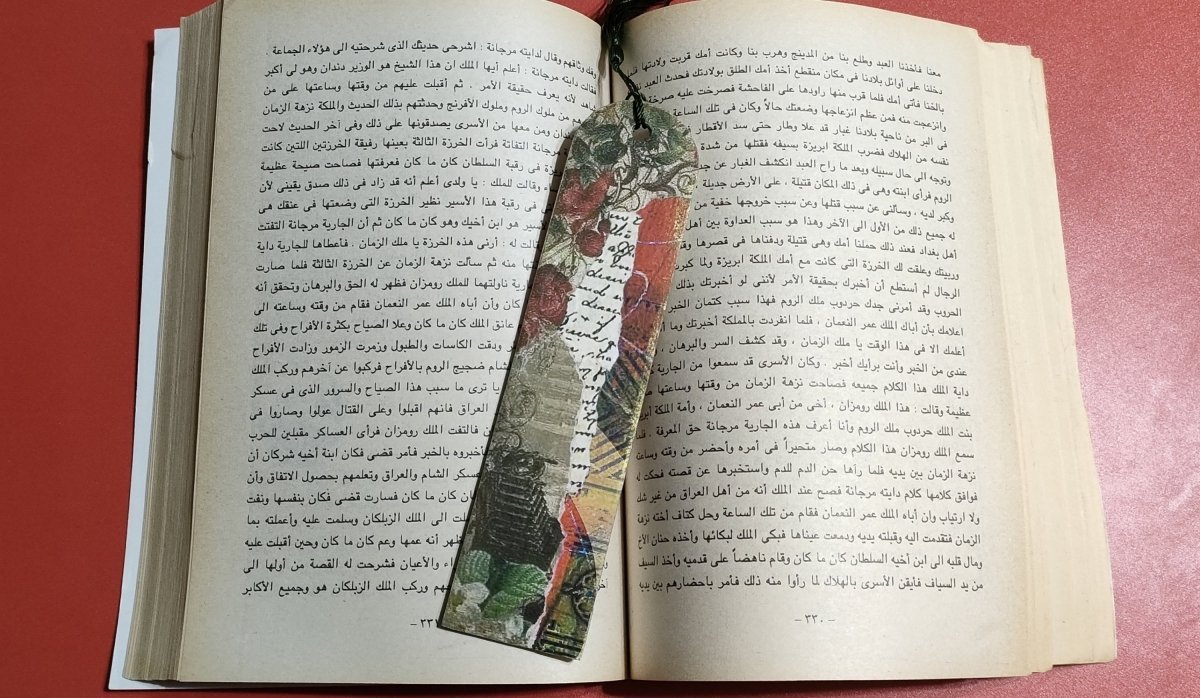 معنا فأخذنا العبد وطلع بنا من المدينج وهرب بنا وكانت أمك قربت ولادتها فلما
دخلنا على أوائل بلادنا فى مكان منقطع أخذ أمك الطلق بولادتك فحدث العبد
بالخنا فأتى أمك فلما قرب منها راودها على الفاحشة فصرخت عليه صرخة
وانزعجت منه فمن عظم انزعاجها وضعتك حالاً وكان فى تلك الساعة
فى البر من ناحية بلادنا غبار قد علا وطار حتى سد الأقطار
نفسه من الهلاك فضرب الملكة ابريزة بسيفه فقتلها من شدة
وتوجه الى حال سبيله وبعد ما راح العبد انكشف الغبار عن
الروم فرأى ابنته وهى فى ذلك المكان قتيلة ، على الأرض جديلة
وكبر لديه ، وسألنى عن سبب قتلها وعن سبب خروجها خفية من
له جميع ذلك من الأول الى الآخر وهذا هو سبب العداوة بين أهل
أهل بغداد فعند ذلك حملنا أمك وهى قتيلة ودفناها فى قصرها
وربيتك وعلقت لك الخرزة التى كانت مع أمك الملكة ابريزة ولما
الرجال لم أستطع أن أخبرك بحقيقة الأمر لأننى لو أخبرتك بذلك
الحروب وقد أمرنى جدك حردوب ملك الروم فهذا سبب كتمان الخبر
اعلامك بأن أباك الملك عمر النعمان ، فلما انفردت بالمملكة أخبرتك وما
أعلمك الا فى هذا الوقت يا ملك الزمان ، وقد كشف السر والبرهان ،
عندى من الخبر وأنت برأيك أخبر . وكان الأسرى قد سمعوا من الجارية
داية الملك هذا الكلام جميعه فصاحت نزهة الزمان من وقتها وساعتها
عظيمة وقالت : هذا الملك رومزان ، أخى من أبى عمر النعمان ، وأمه الملكة
بنت الملك حردوب ملك الروم وأنا أعرف هذه الجارية مرجانة حق المعرفة .
سمع الملك رومزان هذا الكلام وصار متحيراً فى أمره وأحضر من وقته وساعته
نزهة الزمان بين يديه فلما رآها حن الدم للدم واستخبرها عن قصته فحكت له
فوافق كلامها كلام دايته مرجانة فصح عند الملك أنه من أهل العراق من غير شك
ولا ارتياب وان أباه الملك عمر النعمان فقام من تلك الساعة وحل كتاف أخته نزهة
الزمان فتقدمت اليه وقبلته يديه ودمعت عيناها فبكى الملك لبكائها وأخذه حنان الأخ
ومال قلبه الى ابن أخيه السلطان كان ما كان وقام ناهضاً على قدميه وأخذ السيف
من يد السياف فأيقن الأسرى بالهلاك لما رأوا منه ذلك فأمر باحضارهم بين يديه
– ٣٣٠ –
وفك وثاقهم وقال لدايته مرجانة : اشرحى حديثك الذى شرحتيه الى هؤلاء الجماعة .
فقالت دايته مرجانة : أعلم أيها الملك ان هذا الشيخ هو الوزير دندان وهو لى أكبر
لأنه يعرف حقيقة الأمر . ثم أقبلت عليهم من وقتها وساعتها على من
من ملوك الروم وملوك الأفرنج وحدثتهم بذلك الحديث والملكة نزهة الزمان
ومن معها من الأسرى يصدقونها على ذلك وفى آخر الحديث لاحت
مرجانة التفاتة فرأت الخرزة الثالثة بعينها رفيقة الخرزتين اللتين كانت
فى رقبة السلطان كان ما كان فعرفتها فصاحت صيحة عظيمة
وقالت للملك : يا ولدى أعلم أنه قد زاد فى ذلك صدق يقينى لأن
فى رقبة هذا الأسير نظير الخرزة التى وضعتها فى عنقك هى
هو ابن أخيك وهو كان ما كان ثم أن الجارية مرجانة التفتت
له : أرنى هذه الخرزة يا ملك الزمان . فأعطاها للجارية داية
منه ثم سألت نزهة الزمان عن الخرزة الثالثة فلما صارت
ناولتهما للملك رومزان فظهر له الحق والبرهان وتحقق أنه
كان وأن أباه الملك عمر النعمان فقام من وقته وساعته الى
عانق الملك كان ما كان وعلا الصياح بكثرة الأفراح وفى تلك
ودقت الكاسات والطبول وزمرت الزمور وزادت الأفراح
ضجيج الروم بالأفراح فركبوا عن آخرهم وركب الملك
يا ترى ما سبب هذا الصياح والسرور الذى فى عسكر
العراق فانهم اقبلوا وعلى القتال عولوا وصاروا فى
فالتفت الملك رومزان فرأى العساكر مقبلين للحرب
فأخبروه بالخبر فأمر قضى فكان ابنة أخيه شركان أن
عسكر الشام والعراق وتعلمهم بحصول الاتفاق وأن
كان ما كان فسارت قضى فكان بنفسها ونفت
الى الملك الزبلكان وسلمت عليه وأعلمته بما
أنه عمها وعم كان ما كان وحين أقبلت عليه
والأعيان فشرحت له القصة من أولها الى
وركب الملك الزبلكان هو وجميع الأكابر